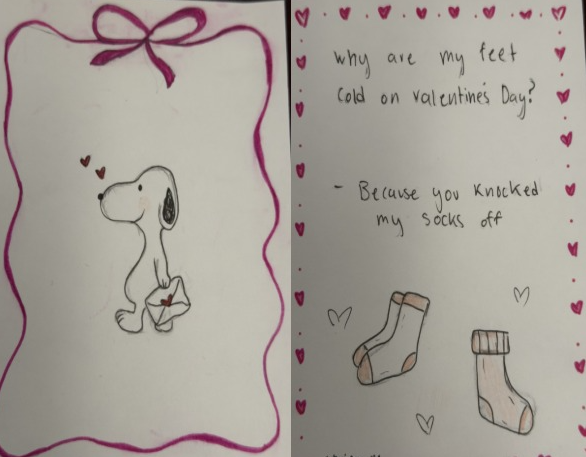 why are my feet
cold on valentine's Day?
- Because you knocked
my socks off